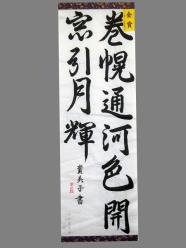 金賞
巻幌通河色開
窓引月輝
貴美子書